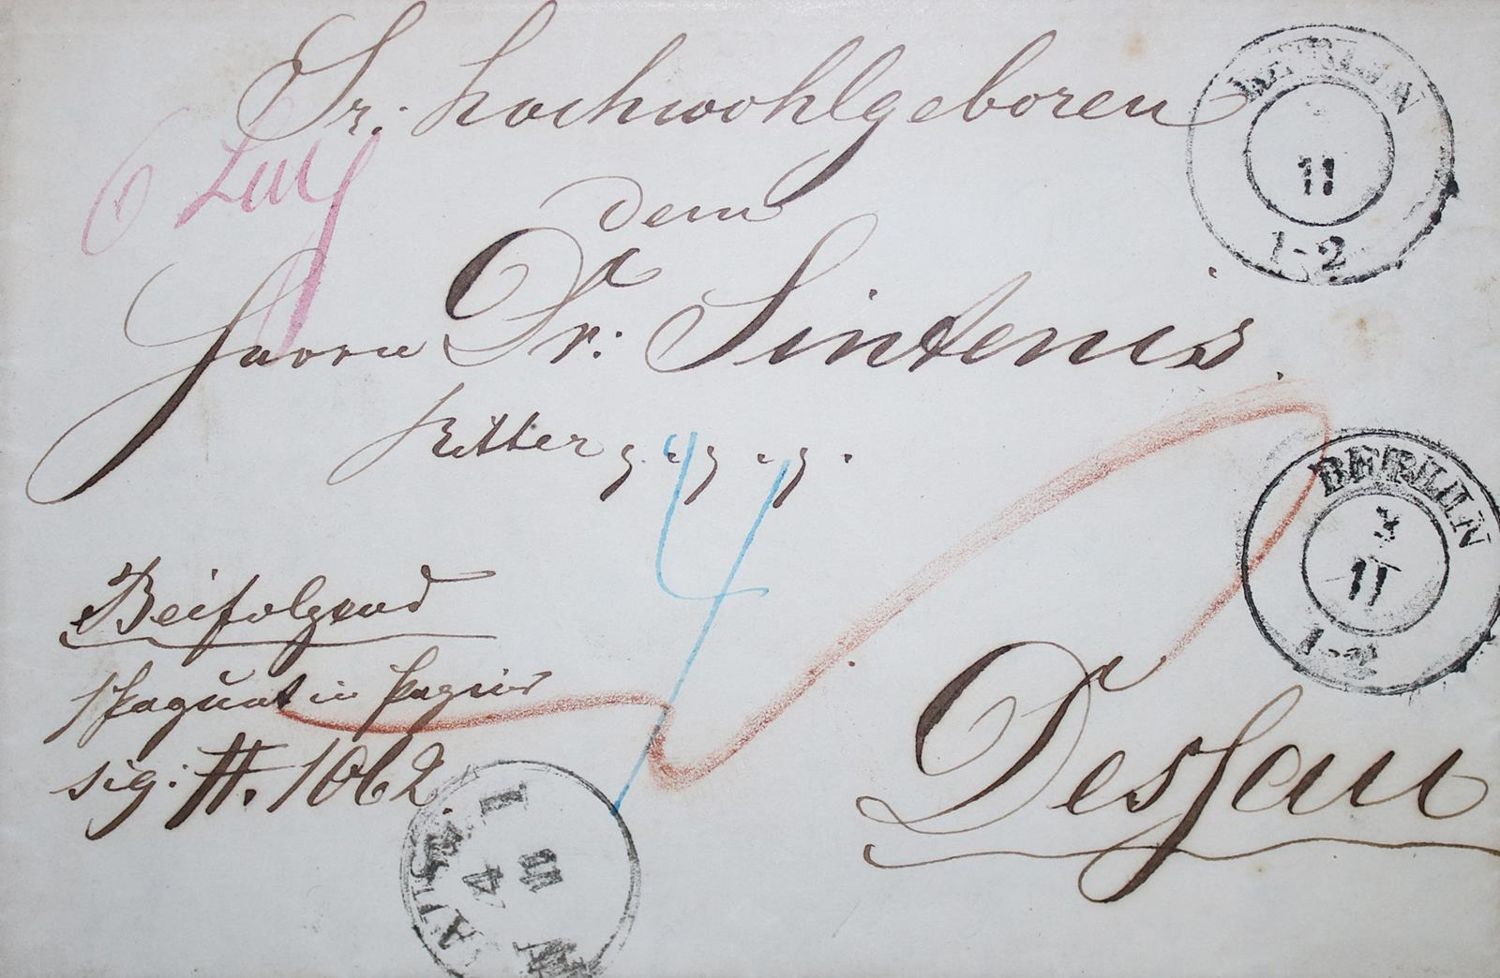 Sr. Hochwohlgeboren
dem
Herrn Dr: Sintenis.
Ritter
Beifolgend
1 Paquet in Papier
sig: H. 1062.
Dessau
BERLIN
11
1-2
BERLIN
3
11
1-2
4
4
11